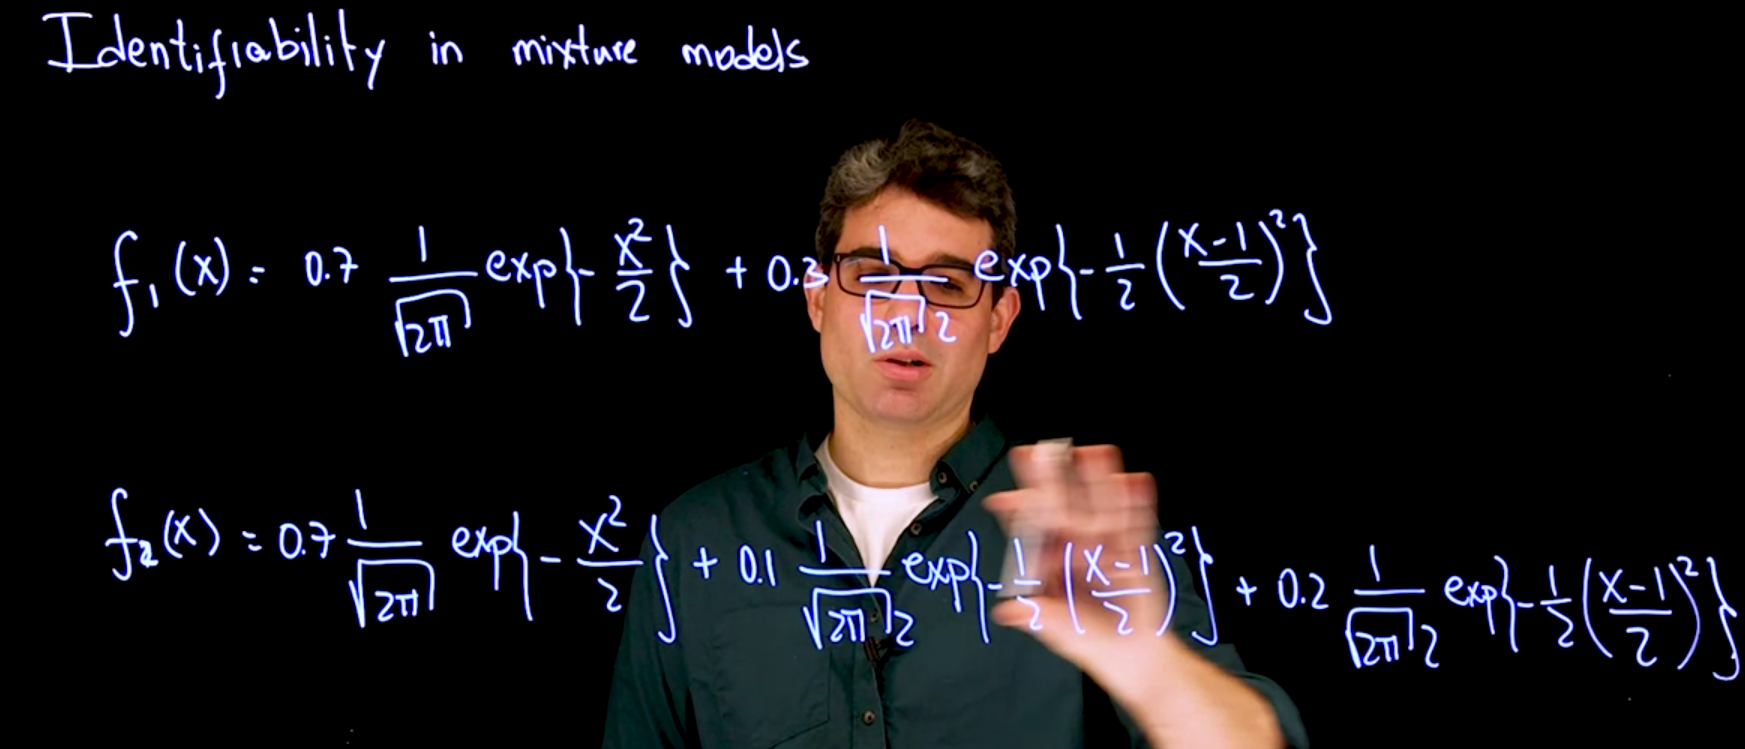 Identifiability in mixture models
f₁(x) = 0.7 \frac{1}{\sqrt{2π}} exp{-\frac{x²}{2}} + 0.3 \frac{1}{\sqrt{2π} 2} exp{-\frac{1}{2}(\frac{x-1}{2})²}
f₂(x) = 0.7 \frac{1}{\sqrt{2π}} exp{-\frac{x²}{2}} + 0.1 \frac{1}{\sqrt{2π} 2} exp{-\frac{1}{2}(\frac{x-1}{2})²} + 0.2 \frac{1}{\sqrt{2π} 2} exp{-\frac{1}{2}(\frac{x-1}{2})²}